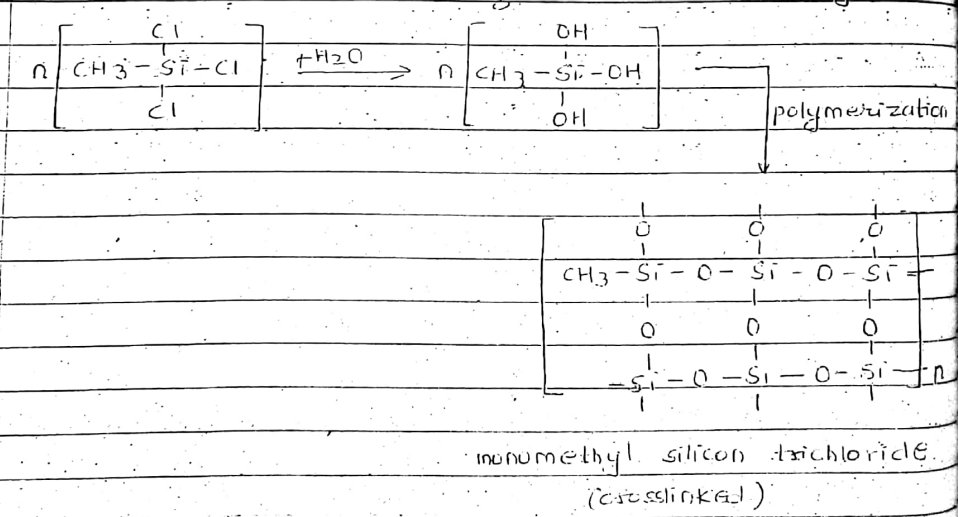 Cl OH
n [ CH3 - Si - Cl ] +H2O → n [ CH3 - Si - OH ]
Cl OH
polymerization
O O O
CH3 - Si - O - Si - O - Si -
O O O
- Si - O - Si - O - Si - n
monomethyl silicon trichloride.
(crosslinked)